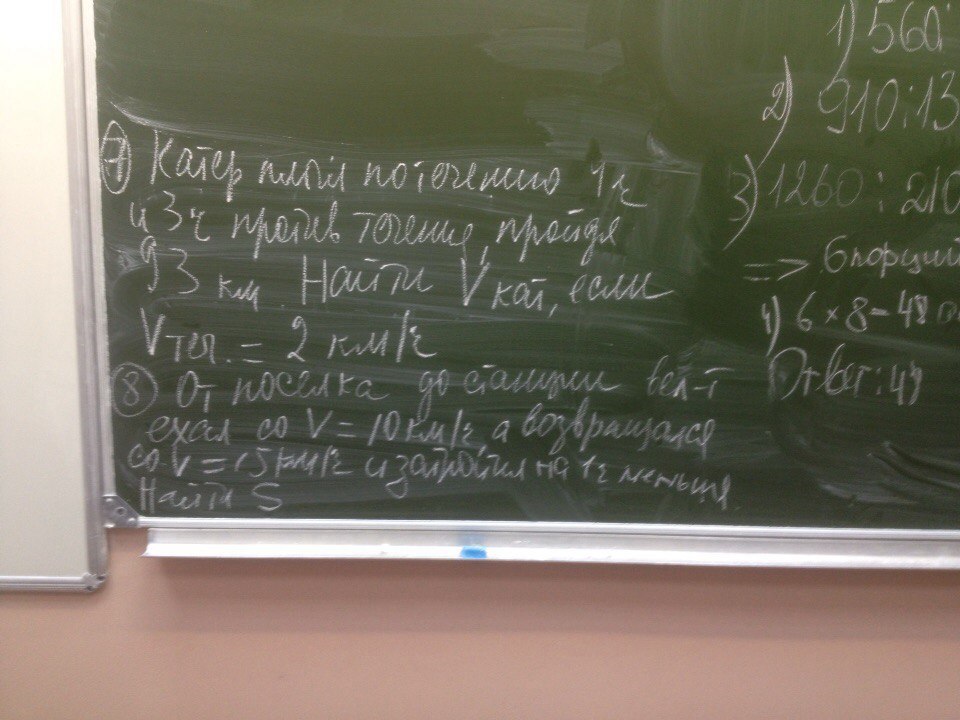 7 Катер плыл по течению 1 ч
и 3ч против течения, пройдя
93 км. Найти Vкат, если
Vтеч. = 2 км/ч
8 От поселка до станции вел-т
ехал со V = 10 км/ч, а возвращался
со V = 15 км/ч и затратил на 1ч меньше.
Найти S
1) 560
2) 910:13
3) 1260 : 210
=> 6 порций
4) 6 × 8 = 48
Ответ: 48